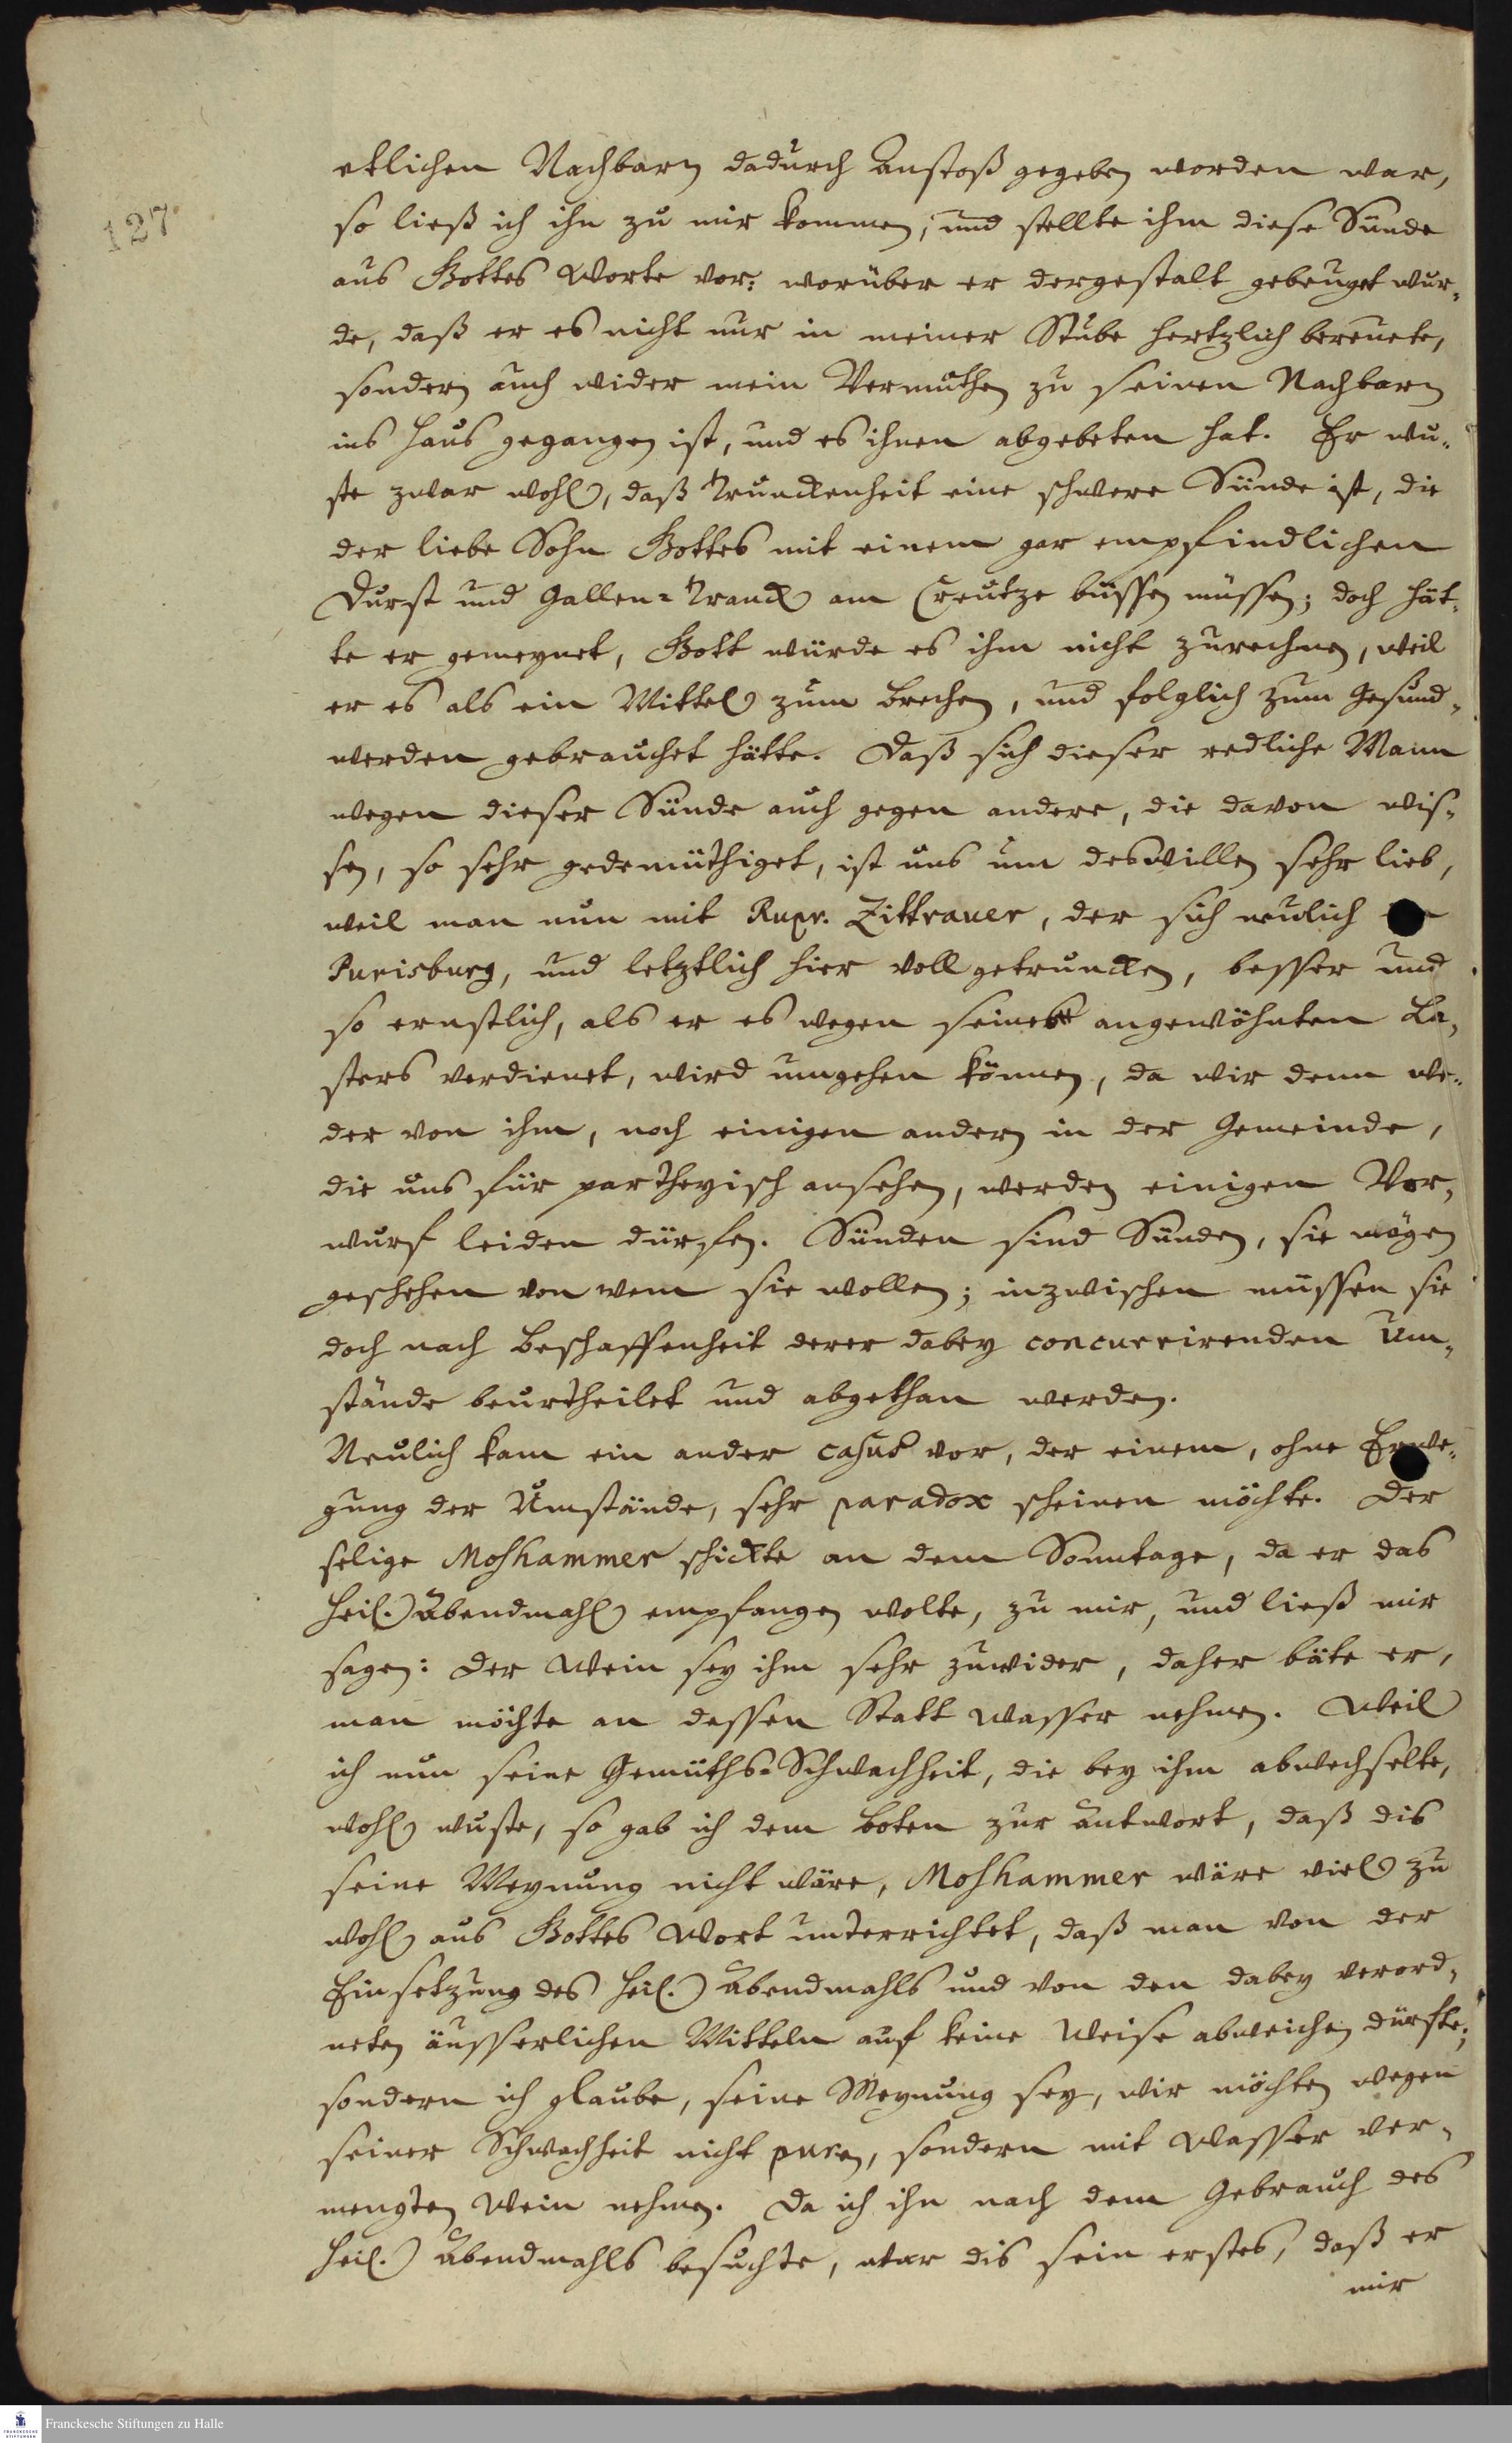 127
etlichen Nachbarn dadurch Anstoß gegeben worden war,
so ließ ich ihn zu mir kommen, und stellte ihm diese Sünde
aus Gottes Worte vor: worüber er dergestalt gebeuget wur-
de, daß er es nicht nur in meiner Stube hertzlich bereuete,
sondern auch wider mein Vermuthen zu seinen Nachbarn
ins Haus gegangen ist, und es ihnen abgebeten hat. Er wu-
ste zwar wohl, daß Trunckenheit eine schwere Sünde ist, die
der liebe Sohn Gottes mit einem gar empfindlichen
Durst und Gallen-Tranck am Creutze büssen müssen; doch hät-
te er gemeynet, Gott würde es ihm nicht zurechnen, weil
er es als ein Mittel zum Brechen, und folglich zum Gesund-
werden gebrauchet hätte. Daß sich dieser redliche Mann
wegen dieser Sünde auch gegen andere, die davon wis-
sen, so sehr gedemüthiget, ist uns um deswillen sehr lieb,
weil man nun mit Rupr. Zittrauer, der sich neulich
Purisburg, und letztlich hier voll getruncken, besser und
so ernstlich, als er es wegen seines angewöhnten La-
sters verdienet, wird umgehen können, da wir denn we-
der von ihm, noch einigen andern in der Gemeinde,
die uns für partheyisch ansehen, werden einigen Vor-
wurf leiden dürfen. Sünden sind Sünden, sie mögen
geschehen von wem sie wollen; inzwischen müssen sie
doch nach Beschaffenheit derer dabey concurrirenden Um-
stände beurtheilet und abgethan werden.
Neulich kam ein ander casus vor, der einem, ohne Erwe-
gung der Umstände, sehr paradox scheinen möchte. Der
selige Moshammer schickte an dem Sonntage, da er das
Heil. Abendmahl empfangen wolte, zu mir, und ließ mir
sagen: Der Wein sey ihm sehr zuwider, daher bäte er,
man möchte an dessen Statt Wasser nehmen. Weil
ich nun seine Gemüths-Schwachheit, die bey ihm abwechselte,
wohl wuste, so gab ich dem Boten zur Antwort, daß dis
seine Meynung nicht wäre, Moshammer wäre viel zu
wohl aus Gottes Wort unterrichtet, daß man von der
Einsetzung des Heil. Abendmahls und von den dabey verord-
neten äusserlichen Mitteln auf keine Weise abweichen dürfte;
sondern ich glaube, seine Meynung sey, wir möchten wegen
seiner Schwachheit nicht puren, sondern mit Wasser ver-
mengten Wein nehmen. Da ich ihn nach dem Gebrauch des
Heil. Abendmahls besuchte, war dis sein erstes, daß er
mir
Franckesche Stiftungen zu Halle